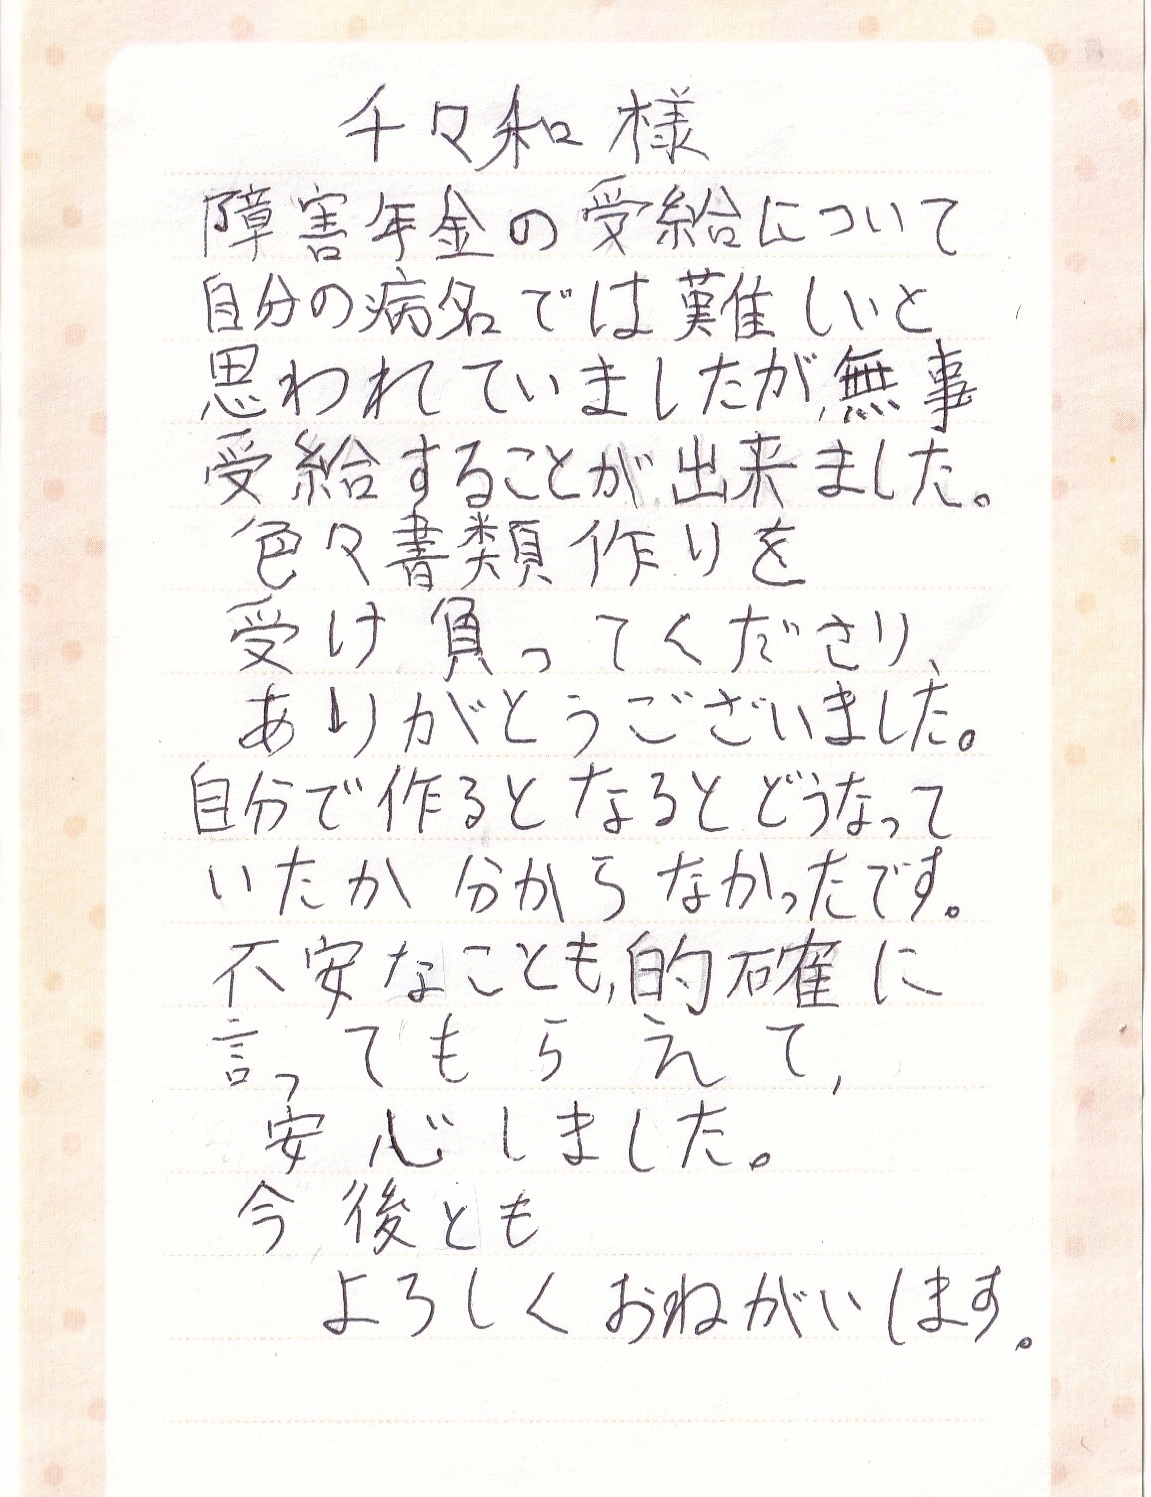 千々和 様
障害年金の受給について
自分の病名では難しいと
思われていましたが、無事
受給することが出来ました。
色々書類作りを
受け負ってくださり、
ありがとうございました。
自分で作るとなるとどうなって
いたか分からなかったです。
不安なことも、的確に
言ってもらえて、
安心しました。
今後とも
よろしくおねがいします。